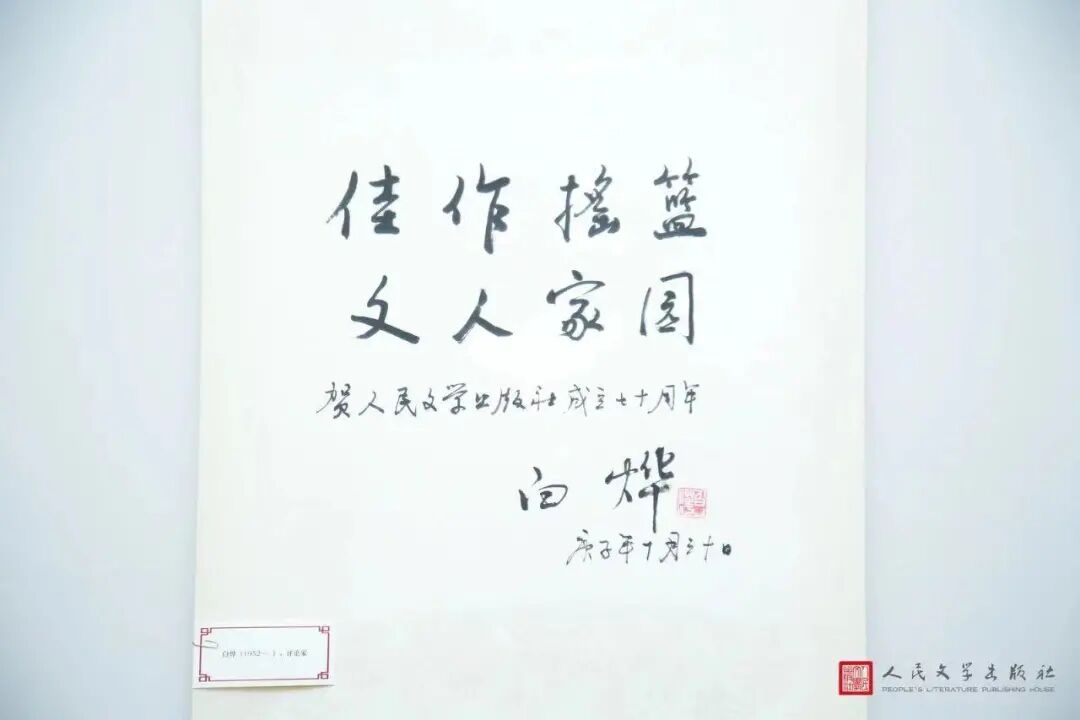 佳作摇篮
文人家园
贺人民文学出版社成立七十周年
白烨
庚子年十月三十日
白烨（1952— ），评论家
人民文学出版社
PEOPLE'S LITERATURE PUBLISHING HOUSE